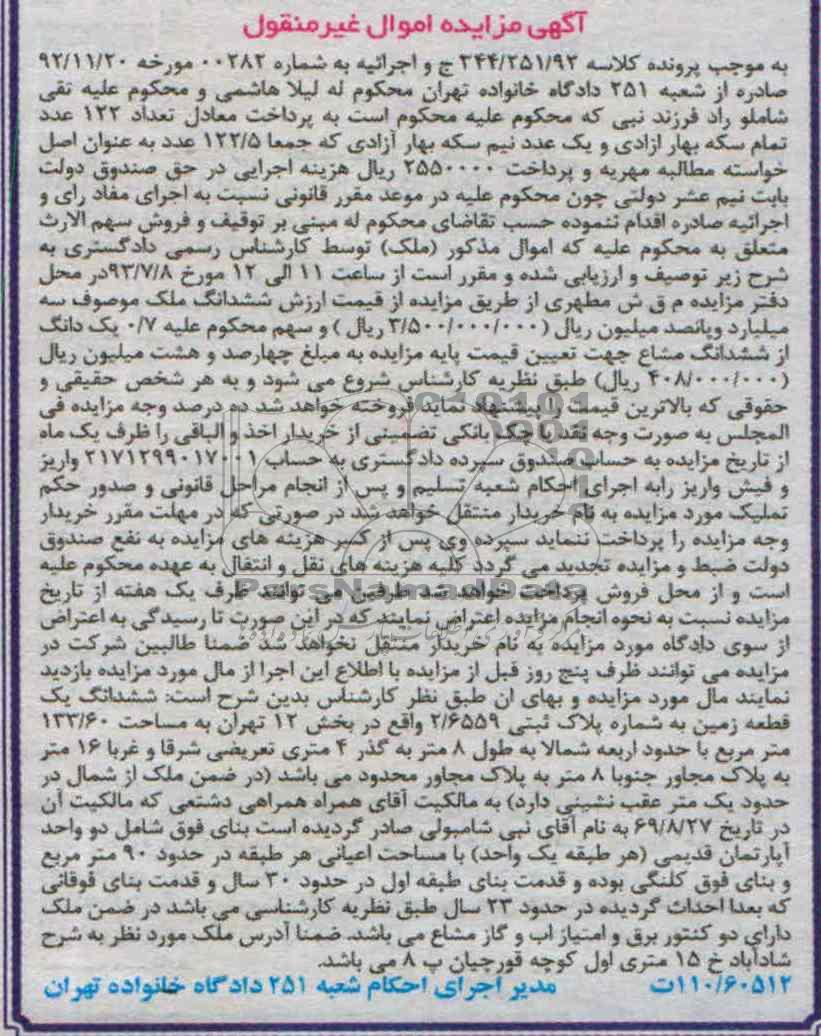 آگهی مزایده اموال غیرمنقول
به موجب پرونده کلاسه ۲۴۴/۲۵۱/۹۲ ج و اجرائیه به شماره ۰۰۲۸۲ مورخه ۹۲/۱۱/۲۰
صادره از شعبه ۲۵۱ دادگاه خانواده تهران محکوم له لیلا هاشمی و محکوم علیه تقی
شاملو راد فرزند نبی که محکوم علیه محکوم است به پرداخت معادل تعداد ۱۲۲ عدد
تمام سکه بهار ازادی و یک عدد نیم سکه بهار آزادی که جمعا ۱۲۲/۵ عدد به عنوان اصل
خواسته مطالبه مهریه و پرداخت ۲۵۵۰۰۰۰ ریال هزینه اجرایی در حق صندوق دولت
بابت نیم عشر دولتی چون محکوم علیه در موعد مقرر قانونی نسبت به اجرای مفاد رای و
اجرائیه صادره اقدام ننموده حسب تقاضای محکوم له مبنی بر توقیف و فروش سهم الارث
متعلق به محکوم علیه که اموال مذکور (ملک) توسط کارشناس رسمی دادگستری به
شرح زیر توصیف و ارزیابی شده و مقرر است از ساعت ۱۱ الی ۱۲ مورخ ۹۳/۷/۸در محل
دفتر مزایده م ق ش مطهری از طریق مزایده از قیمت ارزش ششدانگ ملک موصوف سه
میلیارد وپانصد میلیون ریال (۳/۵۰۰/۰۰۰/۰۰۰ ریال ) و سهم محکوم علیه ۰/۷ یک دانگ
از ششدانگ مشاع جهت تعیین قیمت پایه مزایده به مبلغ چهارصد و هشت میلیون ریال
(۴۰۸/۰۰۰/۰۰۰ ریال) طبق نظریه کارشناس شروع می شود و به هر شخص حقیقی و
حقوقی که بالاترین قیمت را پیشنهاد نماید فروخته خواهد شد ده درصد وجه مزایده فی
المجلس به صورت وجه نقد یا چک بانکی تضمینی از خریدار اخذ و الباقی را ظرف یک ماه
از تاریخ مزایده به حساب صندوق سپرده دادگستری به حساب ۲۱۷۱۲۹۹۰۱۷۰۰۱ واریز
و فیش واریز رابه اجرای احکام شعبه تسلیم و پس از انجام مراحل قانونی و صدور حکم
تملیک مورد مزایده به نام خریدار منتقل خواهد شد در صورتی که در مهلت مقرر خریدار
وجه مزایده را پرداخت ننماید سپرده وی پس از کسر هزینه های مزایده به نفع صندوق
دولت ضبط و مزایده تجدید می گردد کلیه هزینه های نقل و انتقال به عهده محکوم علیه
است و از محل فروش پرداخت خواهد شد طرفین می توانند ظرف یک هفته از تاریخ
مزایده نسبت به نحوه انجام مزایده اعتراض نمایند که در این صورت تا رسیدگی به اعتراض
از سوی دادگاه مورد مزایده به نام خریدار منتقل نخواهد شد ضمنا طالبین شرکت در
مزایده می توانند ظرف پنج روز قبل از مزایده با اطلاع این اجرا از مال مورد مزایده بازدید
نمایند مال مورد مزایده و بهای ان طبق نظر کارشناس بدین شرح است: ششدانگ یک
قطعه زمین به شماره پلاک ثبتی ۲/۶۵۵۹ واقع در بخش ۱۲ تهران به مساحت ۱۳۳/۶۰
متر مربع با حدود اربعه شمالا به طول ۸ متر به گذر ۴ متری تعریضی شرقا و غربا ۱۶ متر
به پلاک مجاور جنوبا ۸ متر به پلاک مجاور محدود می باشد (در ضمن ملک از شمال در
حدود یک متر عقب نشینی دارد) به مالکیت آقای همراه همراهی دشتعی که مالکیت آن
در تاریخ ۶۹/۸/۲۷ به نام آقای نبی شامبولی صادر گردیده است بنای فوق شامل دو واحد
آپارتمان قدیمی (هر طبقه یک واحد) با مساحت اعیانی هر طبقه در حدود ۹۰ متر مربع
و بنای فوق کلنگی بوده و قدمت بنای طبقه اول در حدود ۳۰ سال و قدمت بنای فوقانی
که بعدا احداث گردیده در حدود ۲۳ سال طبق نظریه کارشناسی می باشد در ضمن ملک
دارای دو کنتور برق و امتیاز اب و گاز مشاع می باشد. ضمنا آدرس ملک مورد نظر به شرح
شادآباد خ ۱۵ متری اول کوچه قورچیان پ ۸ می باشد.
۱۱۰/۶۰۵۱۲ت مدیر اجرای احکام شعبه ۲۵۱ دادگاه خانواده تهران
ParsNamadData